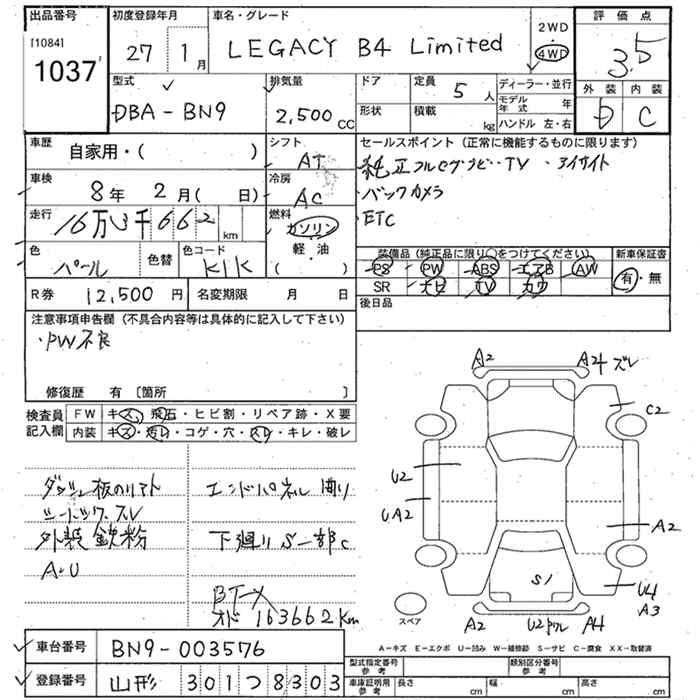 出品番号
[1084]
1037
初度登録年月
27 1月
車名・グレード
LEGACY B4 Limited
2WD
・
4WD
評価点
3.5
外装 内装
D C
型式
DBA-BN9
排気量
2,500cc
ドア
形状
定員
5人
積載
kg
ディーラー・並行
モデル年式 年
ハンドル 左・右
車歴
自家用・( )
シフト
AT
セールスポイント(正常に機能するものに限ります)
純正フルセグナビ・TV ・アイサイト
・バックカメラ
・ETC
車検
8年 2月( 日)
冷房
AC
走行
16万3千662km
燃料
ガソリン
軽・油
( ・ )
色
パール
色替
色コード
K1K
装備品(純正品に限り○をつけてください)
PS PW ABS エアB AW
SR ナビ TV カワ
新車保証書
有・無
R券 12,500円
名変期限 月 日
後日品
注意事項申告欄(不具合内容等は具体的に記入して下さい)
・PW不良
修復歴 有〔箇所 〕
検査員
記入欄
FW キズ・飛石・ヒビ割・リペア跡・X要
内装 キズ・汚レ・コゲ・穴・スレ・キレ・破レ
ダッシュ板のリアト
シートシワ・スレ
外装鉄粉
A・U
エンドパネル曲り
下廻りS一部C
BT-X
オド163662Km
A2
A24 ズレ
C2
U2
UA2
A2
S1
U4
A3
スペア
A2
U2
A4
A-キズ E-エクボ U-凹み W-補修跡 S-サビ C-腐食 XX-交換済
車台番号 BN9-003576
登録番号 山形 301つ8303
型式指定番号
参考
類別区分番号
参考
車庫証明用
参考
長さ cm
幅 cm
高さ cm